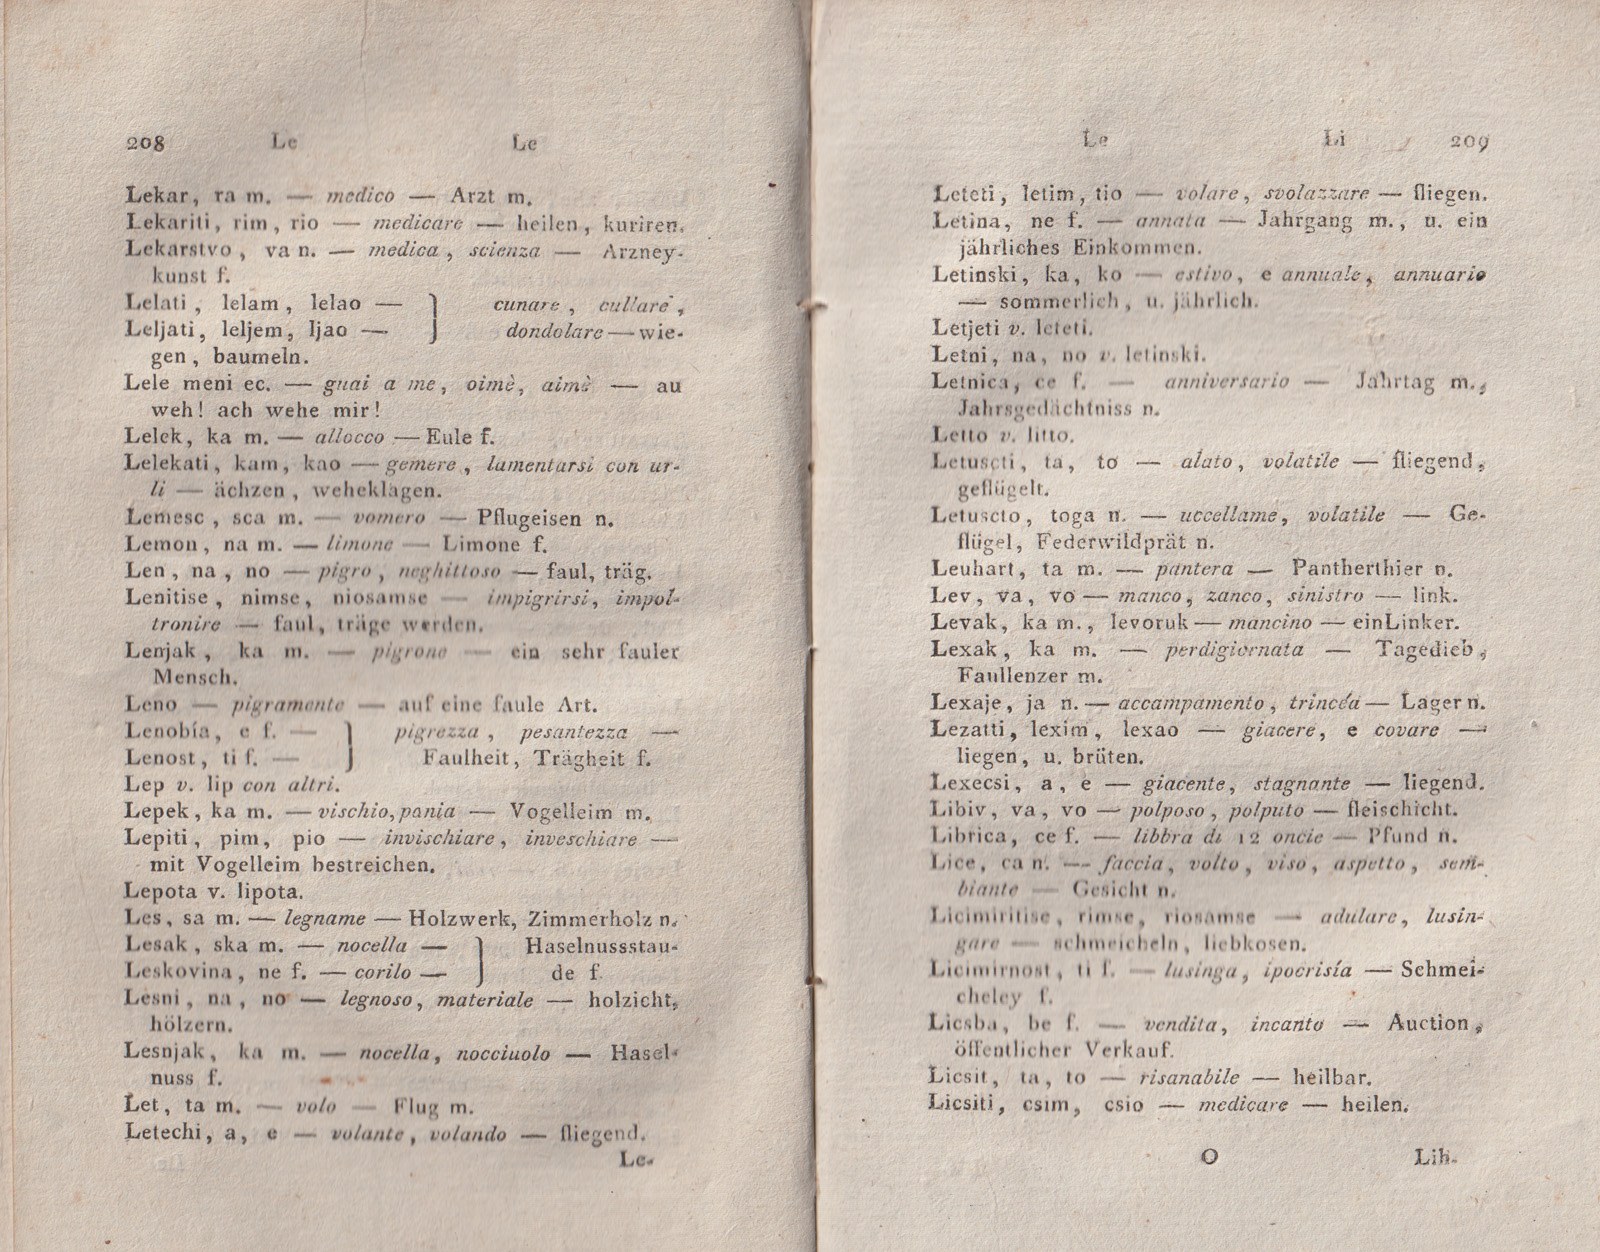 208 Le Le
Lekar, ra m. — medico — Arzt m.
Lekariti, rim, rio — medicare — heilen, kuriren.
Lekarstvo, va n. — medica, scienza — Arzney-
kunst f.
Lelati, lelam, lelao — } cunare, cullare,
Leljati, leljem, ljao — } dondolare — wie-
gen, baumeln.
Lele meni ec. — guai a me, oimè, aimè — au
weh! ach wehe mir!
Lelek, ka m. — allocco — Eule f.
Lelekati, kam, kao — gemere, lamentarsi con ur-
li — ächzen, weheklagen.
Lemesc, sca m. — vomero — Pflugeisen n.
Lemon, na m. — limone — Limone f.
Len, na, no — pigro, neghittoso — faul, träg.
Lenitise, nimse, niosamse — impigrirsi, impol-
tronire — faul, träge werden.
Lenjak, ka m. — pigrone — ein sehr fauler
Mensch.
Leno — pigramente — auf eine faule Art.
Lenobía, e f. — } pigrezza, pesantezza —
Lenost, ti f. — } Faulheit, Trägheit f.
Lep v. lip con altri.
Lepek, ka m. — vischio, pania — Vogelleim m.
Lepiti, pim, pio — invischiare, inveschiare —
mit Vogelleim bestreichen.
Lepota v. lipota.
Les, sa m. — legname — Holzwerk, Zimmerholz n.
Lesak, ska m. — nocella — } Haselnussstau-
Leskovina, ne f. — corilo — } de f.
Lesni, na, no — legnoso, materiale — holzicht,
hölzern.
Lesnjak, ka m. — nocella, nocciuolo — Hasel-
nuss f.
Let, ta m. — volo — Flug m.
Letechi, a, e — volante, volando — fliegend.
Le-
Le Li 209
Leteti, letim, tio — volare, svolazzare — fliegen.
Letina, ne f. — annata — Jahrgang m., u. ein
jährliches Einkommen.
Letinski, ka, ko — estivo, e annuale, annuario
— sommerlich, u. jährlich.
Letjeti v. leteti.
Letni, na, no v. letinski.
Letnica, ce f. — anniversario — Jahrtag m.,
Jahrsgedächtniss n.
Letto v. litto.
Letuscti, ta, to — alato, volatile — fliegend,
geflügelt.
Letuscto, toga n. — uccellame, volatile — Ge-
flügel, Federwildprät n.
Leuhart, ta m. — pantera — Pantherthier n.
Lev, va, vo — manco, zanco, sinistro — link.
Levak, ka m., levoruk — mancino — einLinker.
Lexak, ka m. — perdigiornata — Tagedieb,
Faullenzer m.
Lexaje, ja n. — accampamento, trincéa — Lager n.
Lezatti, lexim, lexao — giacere, e covare —
liegen, u. brüten.
Lexecsi, a, e — giacente, stagnante — liegend.
Libiv, va, vo — polposo, polputo — fleischicht.
Librica, ce f. — libbra di 12 oncie — Pfund n.
Lice, ca n. — faccia, volto, viso, aspetto, sem-
biante — Gesicht n.
Licimiritise, rimse, riosamse — adulare, lusin-
gare — schmeicheln, liebkosen.
Licimirnost, ti f. — lusinga, ipocrisía — Schmei-
cheley f.
Licsba, be f. — vendita, incanto — Auction,
öffentlicher Verkauf.
Licsit, ta, to — risanabile — heilbar.
Licsiti, csim, csio — medicare — heilen.
O Lih-